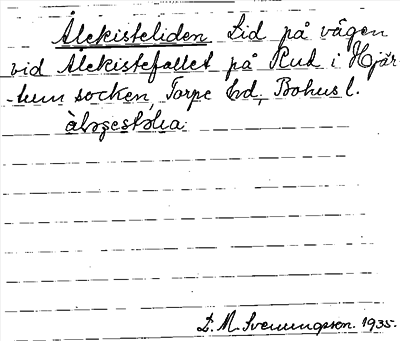 Ålekisteliden Lid på vägen
vid Ålekistefallet på Rud i Hjär-
-tum socken, Torpe hd, Bohusl.
L. M. Svenungsson. 1935.